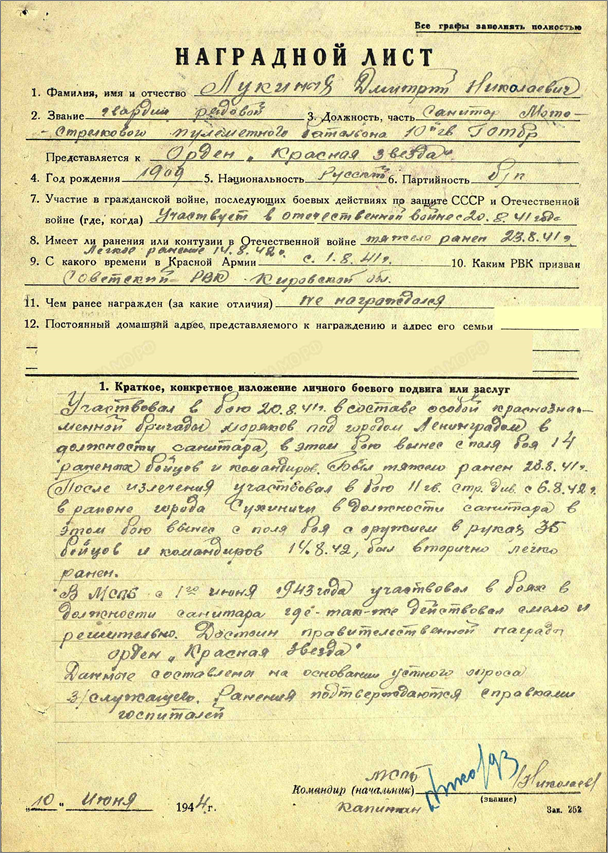 Все графы заполнять полностью
НАГРАДНОЙ ЛИСТ
1. Фамилия, имя и отчество Лукиных Дмитрий Николаевич
2. Звание гвардии рядовой 3. Должность, часть Санитар Мото-
-стрелкового пулеметного батальона 10й гв Готбр
Представляется к Орден „Красная звезда"
4. Год рождения 1909 5. Национальность Русский 6. Партийность б/п
7. Участие в гражданской войне, последующих боевых действиях по защите СССР и Отечественной
войне (где, когда) Участвует в отечественной войне с 20.8.41 года
8. Имеет ли ранения или контузии в Отечественной войне тяжело ранен 23.8.41 г.
Легкое ранение 14.8.42г.
9. С какого времени в Красной Армии с 1.8.41 г. 10. Каким РВК призван
Советский РВК Кировской обл.
11. Чем ранее награжден (за какие отличия) не награждался
12. Постоянный домашний адрес, представляемого к награждению и адрес его семьи
1. Краткое, конкретное изложение личного боевого подвига или заслуг
Участвовал в бою 20.8.41г. в составе особой краснозна-
менной бригады моряков под городом Ленинградом в
должности санитара, в этом бою вынес с поля боя 14
раненых бойцов и командиров. Был тяжело ранен 23.8.41г.
После излечения участвовал в бою 11 гв. стр. див. с 6.8.42г.
в районе города Сухиничи в должности санитара в
этом бою вынес с поля боя с оружием в руках 35
бойцов и командиров 14.8.42, был вторично легко
ранен.
В МСПБ с 1го июня 1943 года участвовал в боях в
должности санитара где-так-же действовал смело и
решительно. Достоин правительственной награды
орден „Красная звезда"
Данные составлены на основании устного опроса
в/служащего. Ранения подтверждаются справками
госпиталей
МСПБ
Командир (начальник) /Николаев/
капитан (звание)
„10" Июня 1944 г. Зак. 252